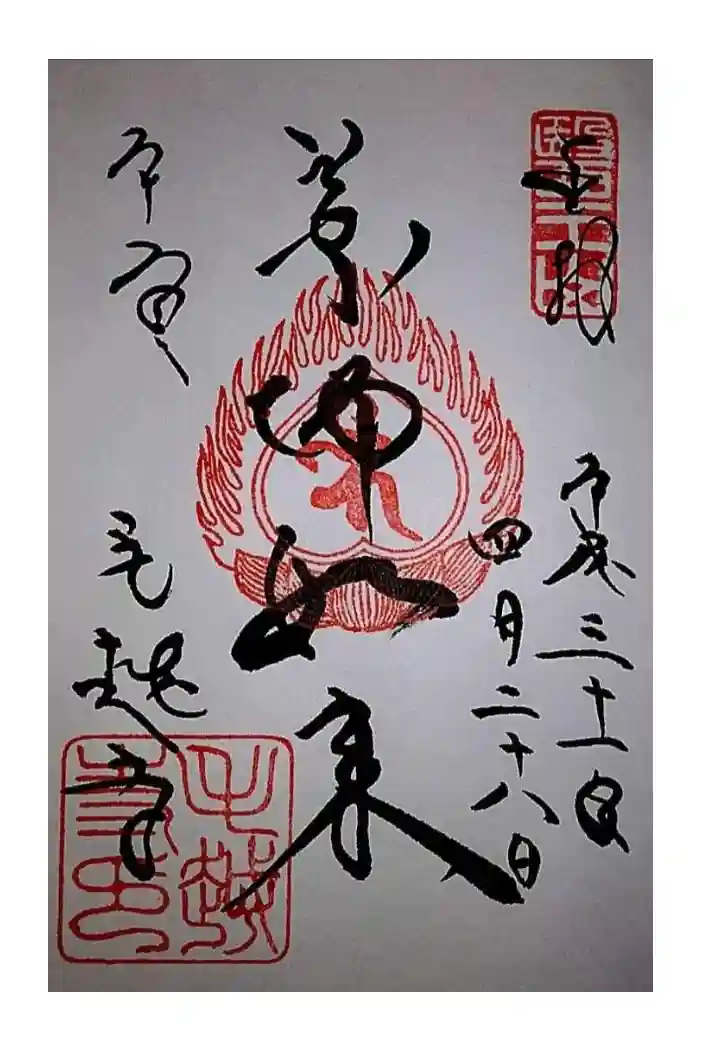 奉拝
平成三十年
四月二十八日
薬師如来
平泉
毛越寺
毛越寺印